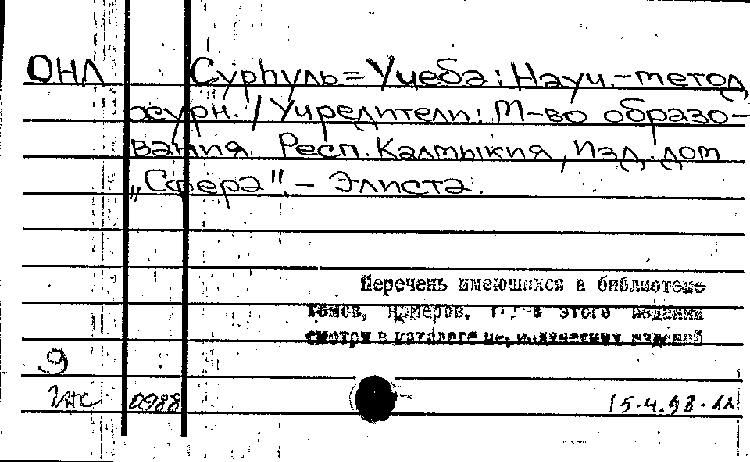 ОНЛ Сурһуль = Учеба: Науч.-метод.
журн. / Учредители: М-во образо-
вания Респ. Калмыкия, Изд. дом
„Сфера". – Элиста.
Перечень имеющихся в библиотеке
томов, номеров, этого издания
смотри в каталоге периодических изданий
9
0988 15.4.98